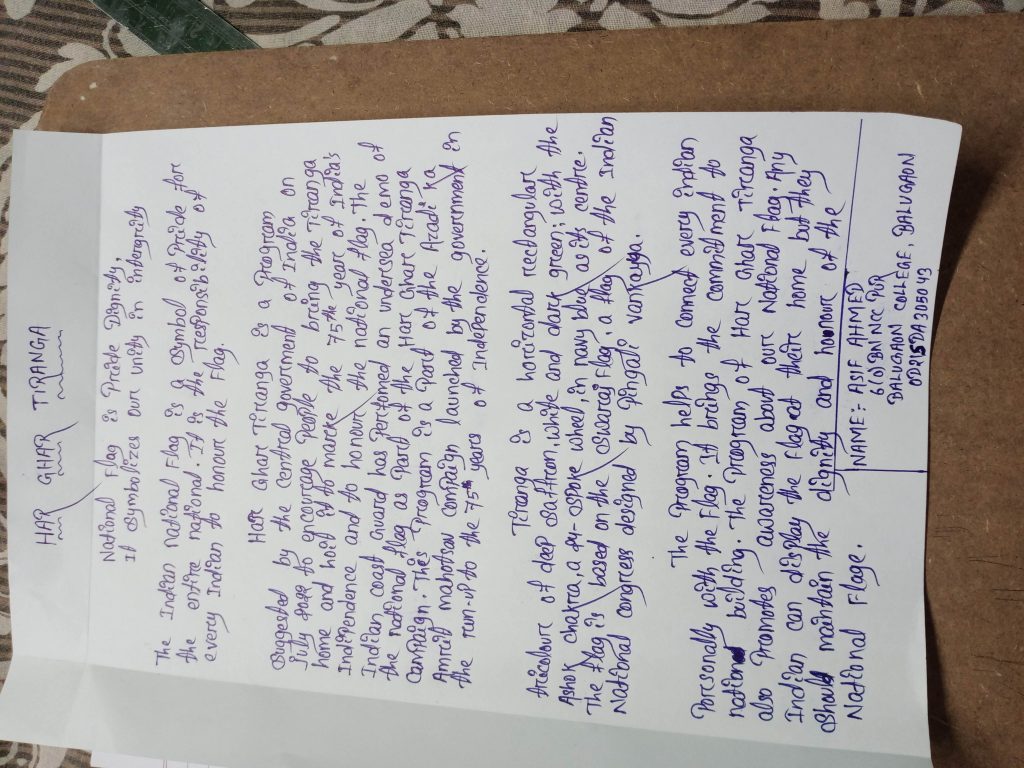 HAR GHAR TIRANGA
National Flag is Pride Dignity,
It Symbolizes our unity in intergrity
The Indian national Flag is a Symbol of Pride for
the entire national. It is the responsibility of
every Indian to honour the Flag.
Har Ghar Tiranga is a Program
Suggested by the Central government of India on
July to encourage People to bring the Tiranga
home and hoit it to marke the 75th year of India's
Independence and to honour the national flag. The
Indian coast guard has Performed an undersea demo of
the national flag as Part of the Har Ghar Tiranga
Campaign. This Program is a Part of the Azadi ka
Amrit mahotsav Compaign launched by the government in
the run-of to the 75th years of Independence.
Tiranga is a horizontal rectangular
tricolour of deep saffron, white and dark green; with the
Ashok chakra, a 24-spoke wheel in navy bluy as its centre.
The flag is based on the Swaraj flag, a flag of the Indian
National congress designed by Pingali vankayya.
The Program helps to connect every indian
Personally with the flag. It brings the commitment to
nation building. The Program of Har Ghar Tiranga
also Promotes awareness about our National Flag. Any
Indian can display the flag at their home but they
should maintain the dignity and honour of the
National Flage.
NAME:- ASIF AHMED
6(O) BN NCC PUR
BALUGAON COLLEGE, BALUGAON
OD15DA305043